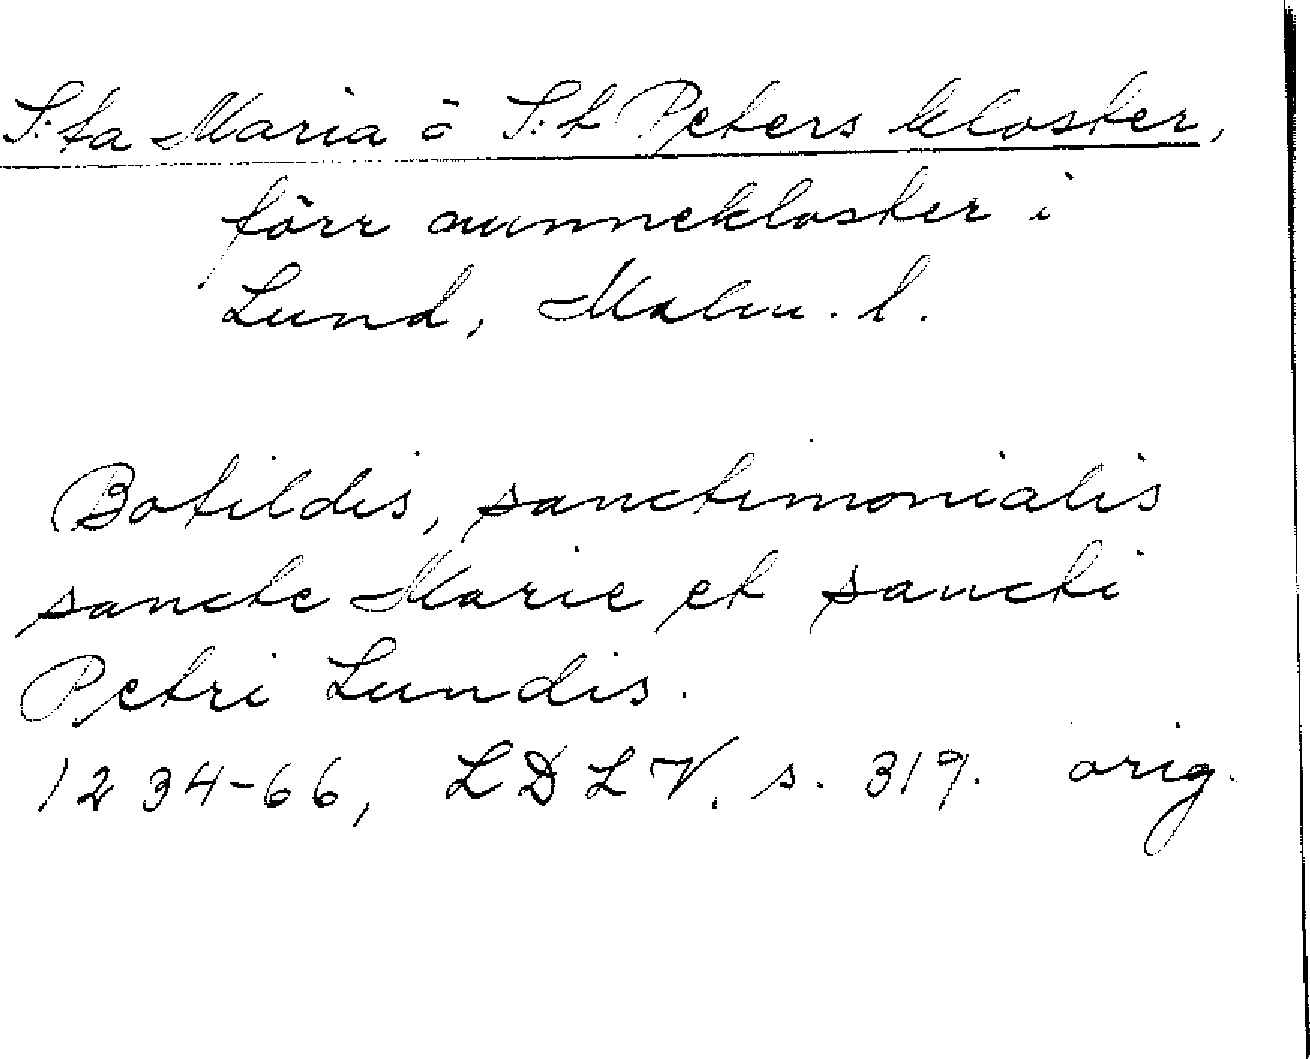 S:ta Maria o S:t Peters kloster,
förr nunnekloster i
Lund, Malm. l.
Botildis, sanctimonialis
sancte Marie et sancti
Petri Lundis.
1234-66, LDLV, s. 319. orig.